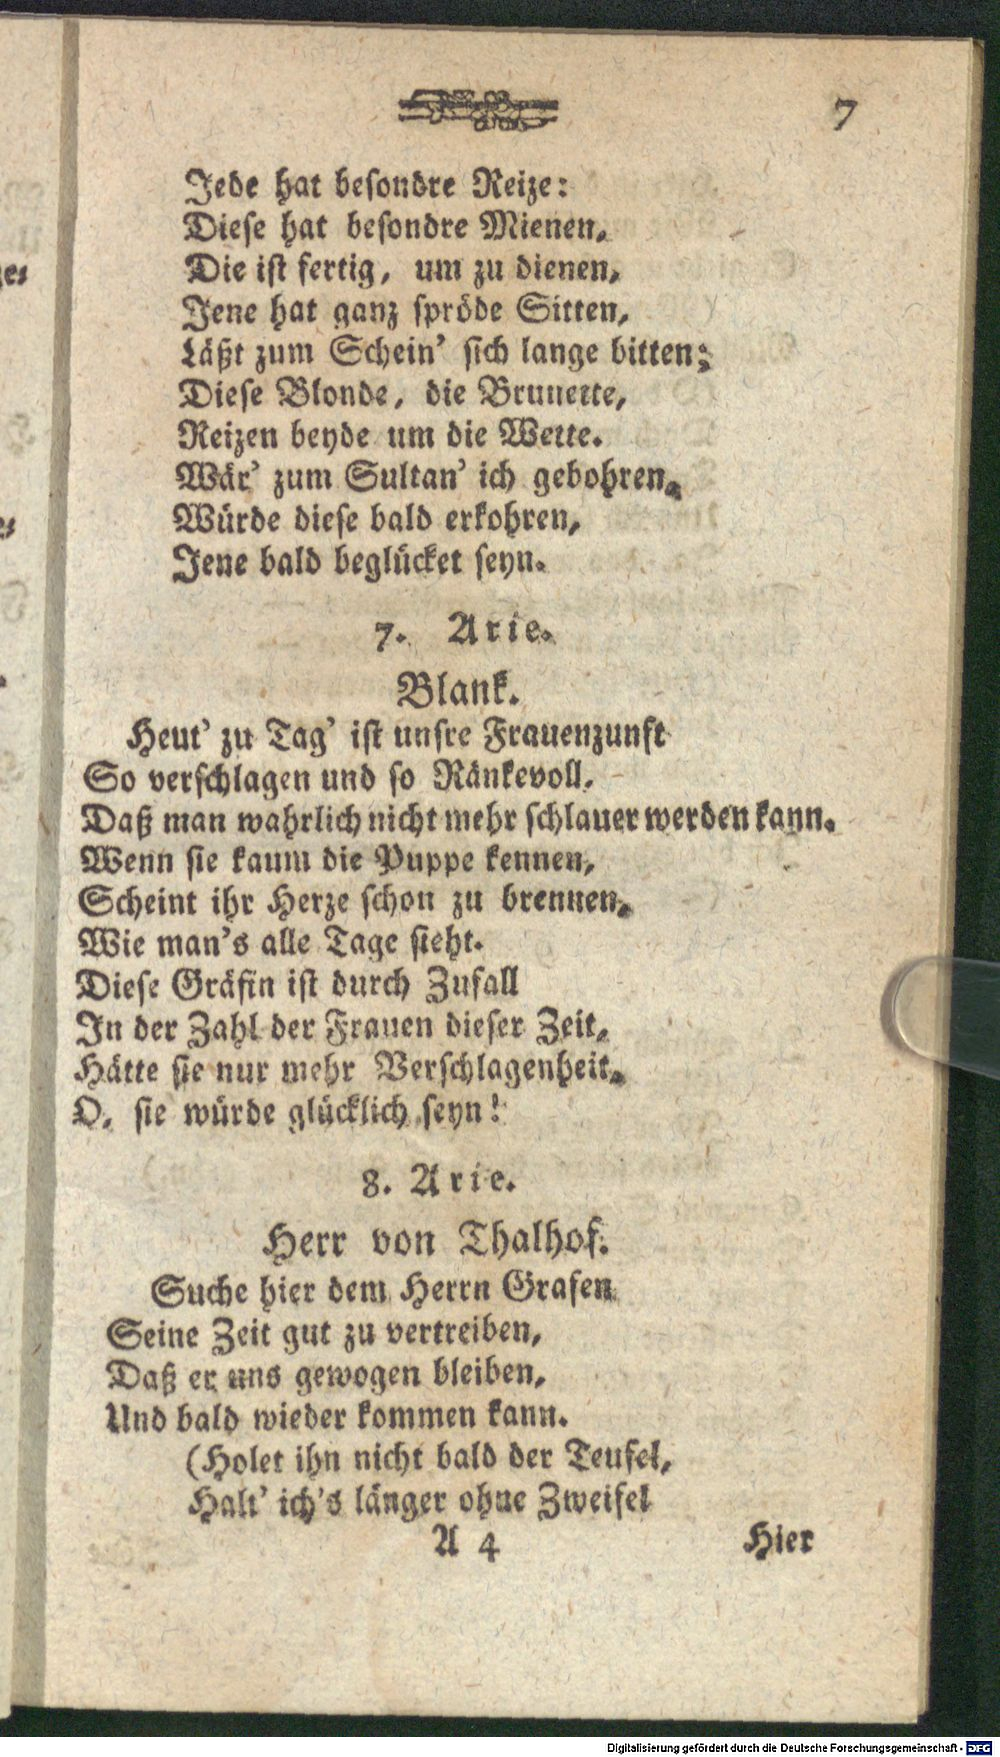 7
Jede hat besondre Reize:
Diese hat besondre Mienen,
Die ist fertig, um zu dienen,
Jene hat ganz spröde Sitten,
Läßt zum Schein' sich lange bitten;
Diese Blonde, die Brunette,
Reizen beyde um die Wette.
Wär' zum Sultan' ich gebohren,
Würde diese bald erkohren,
Jene bald beglücket seyn.
7. Arie.
Blank.
Heut' zu Tag' ist unsre Frauenzunft
So verschlagen und so Ränkevoll,
Daß man wahrlich nicht mehr schlauer werden kann.
Wenn sie kaum die Puppe kennen,
Scheint ihr Herze schon zu brennen,
Wie man's alle Tage sieht.
Diese Gräfin ist durch Zufall
In der Zahl der Frauen dieser Zeit,
Hätte sie nur mehr Verschlagenheit,
O, sie würde glücklich seyn!
8. Arie.
Herr von Thalhof.
Suche hier dem Herrn Grafen
Seine Zeit gut zu vertreiben,
Daß er uns gewogen bleiben,
Und bald wieder kommen kann.
(Holet ihn nicht bald der Teufel,
Halt' ich's länger ohne Zweifel
A 4 Hier
Digitalisierung gefördert durch die Deutsche Forschungsgemeinschaft - DFG